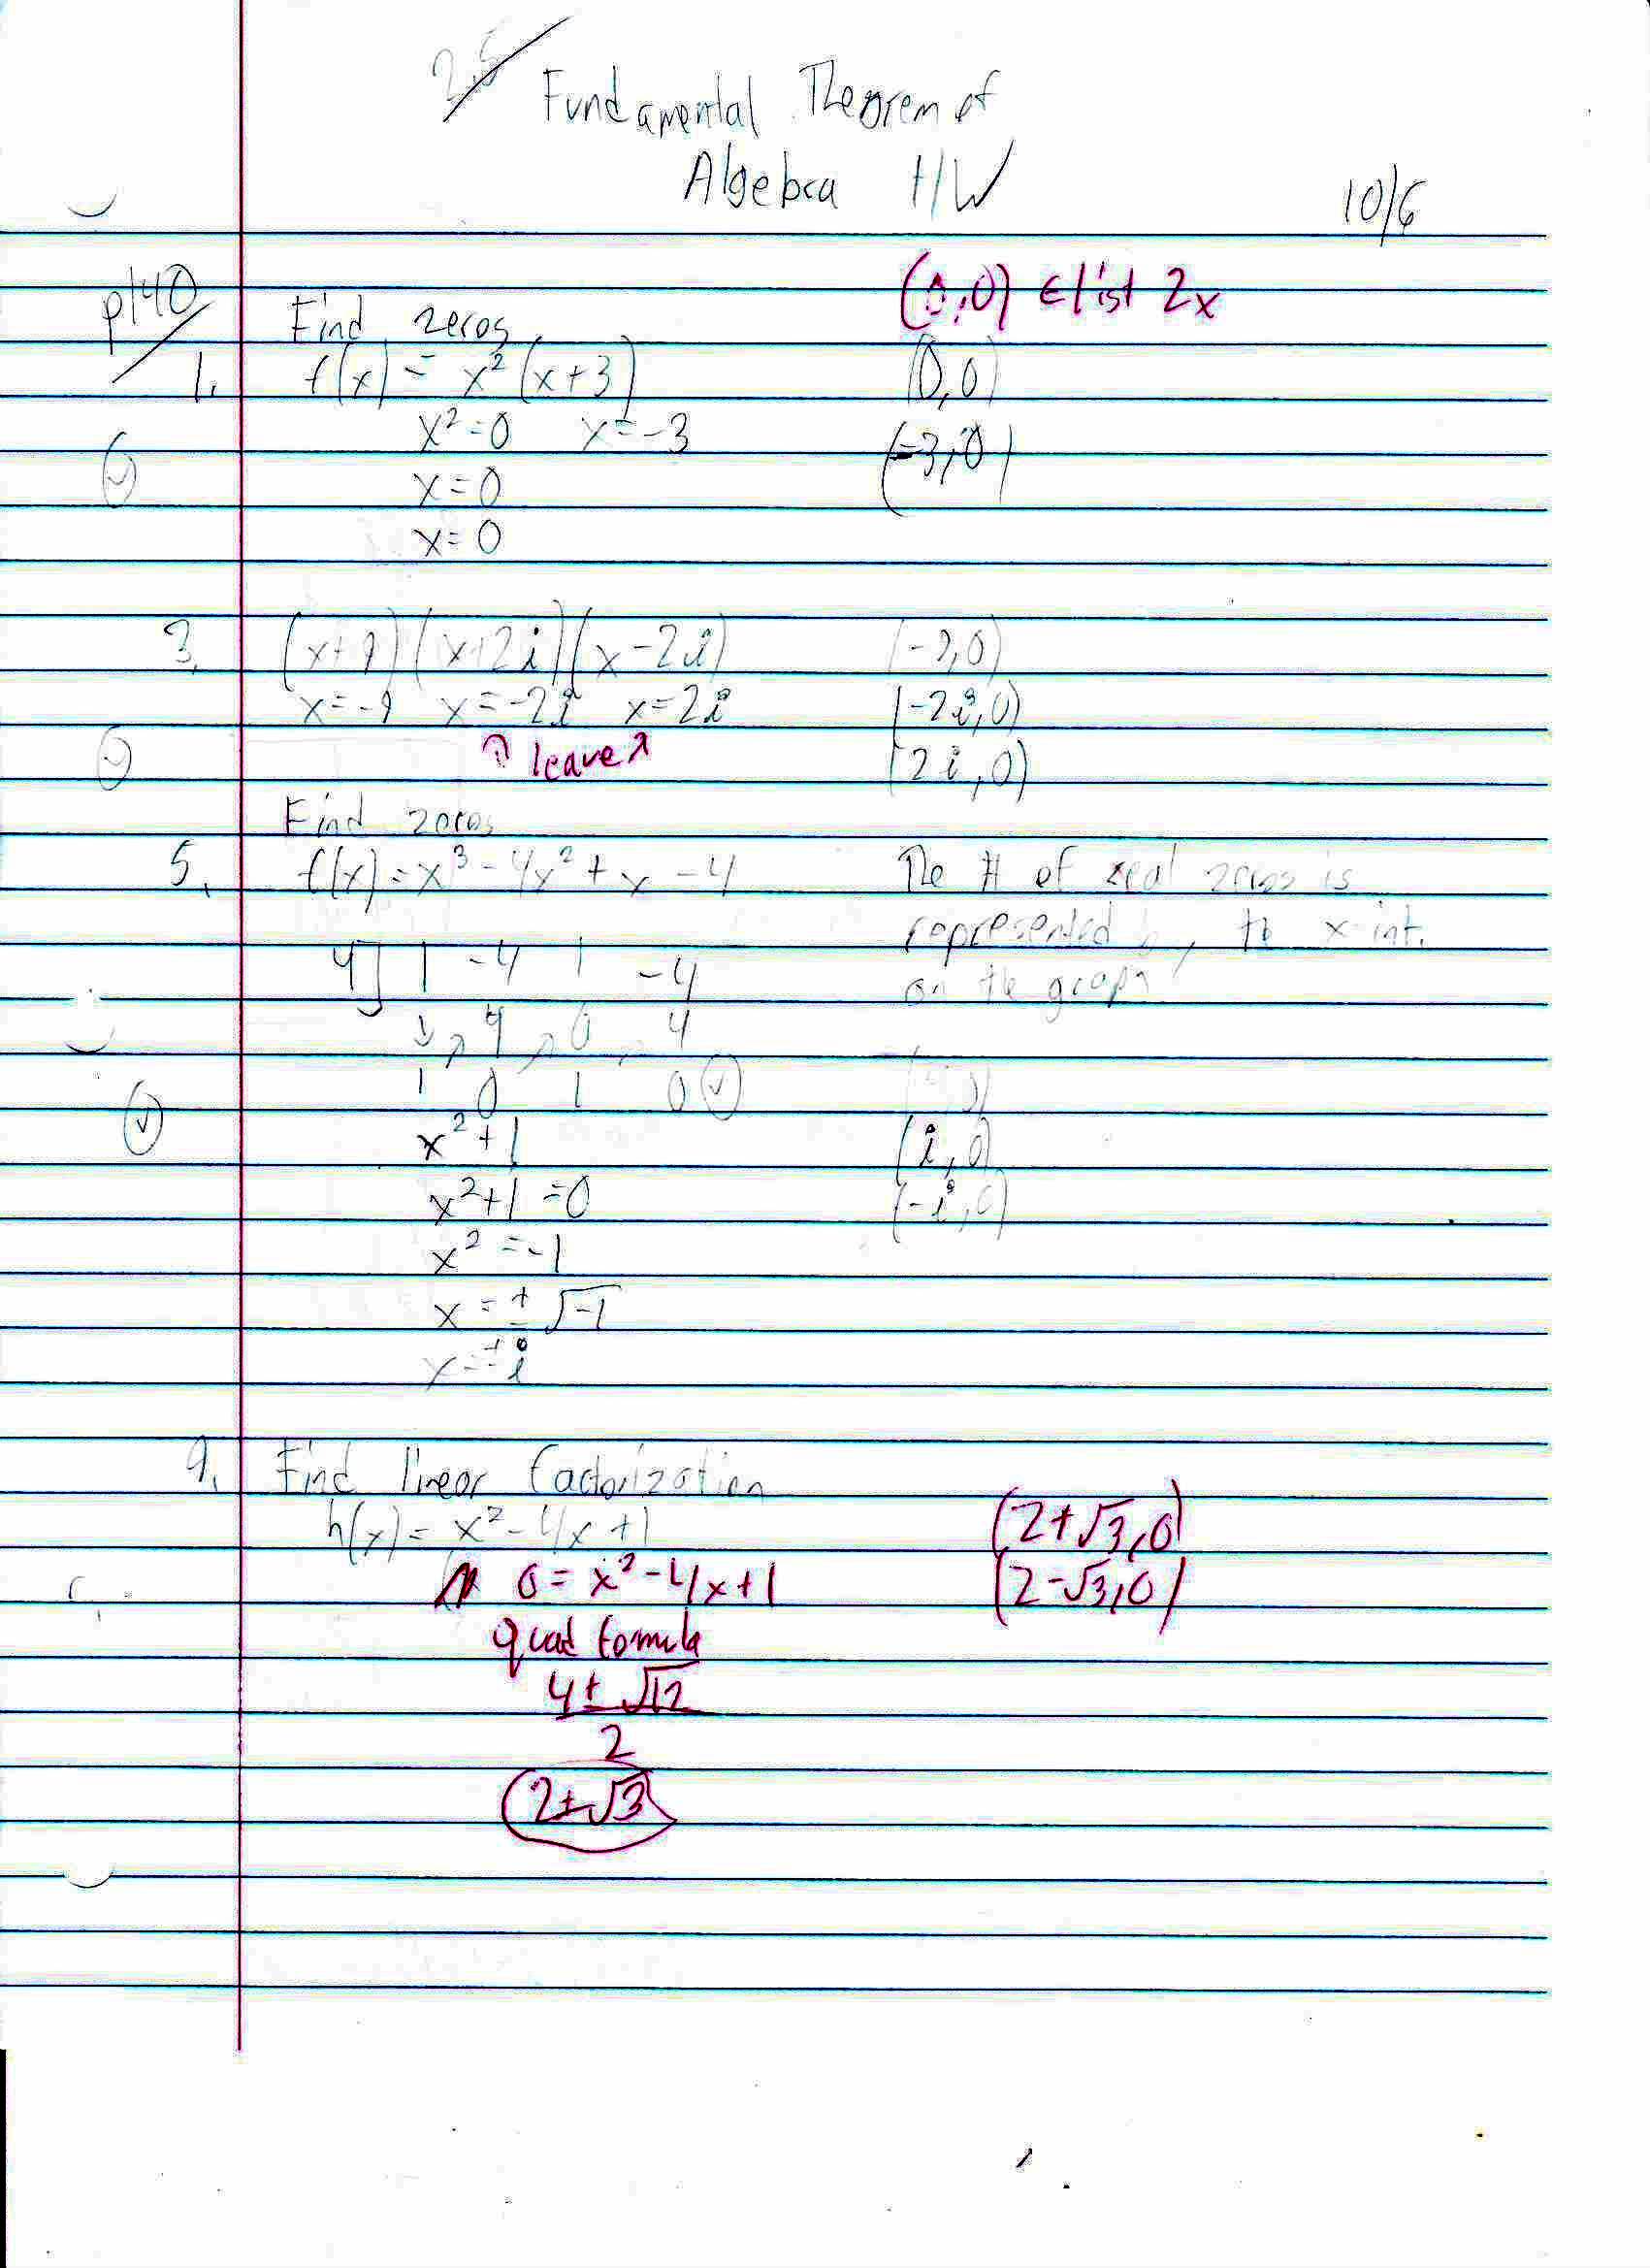 2.5
Fundamental Theorem of
Algebra HW
10/6
p140
(0,0) ∈ list 2x
Find zeros
1. f(x) = x² (x+3) (0,0)
x²=0 x=-3 (-3,0)
x=0
x=0
3. (x+9)(x+2i)(x-2i) (-9,0)
x=-9 x=-2i x=2i (-2i,0)
↑ leave ↑ (2i,0)
Find zeros
5. f(x)=x³-4x²+x-4 The # of real zeros is
represented by the x-int.
4] 1 -4 1 -4 on the graph
↓ 4 0 4
1 0 1 0 ✓
x²+1 (i,0)
x²+1=0 (-i,0)
x²=-1
x=±√-1
x=±i
9. Find linear factorization
h(x)=x²-4x+1 (2+√3,0)
0=x²-4x+1 (2-√3,0)
quad formula
4±√12
2
2±√3